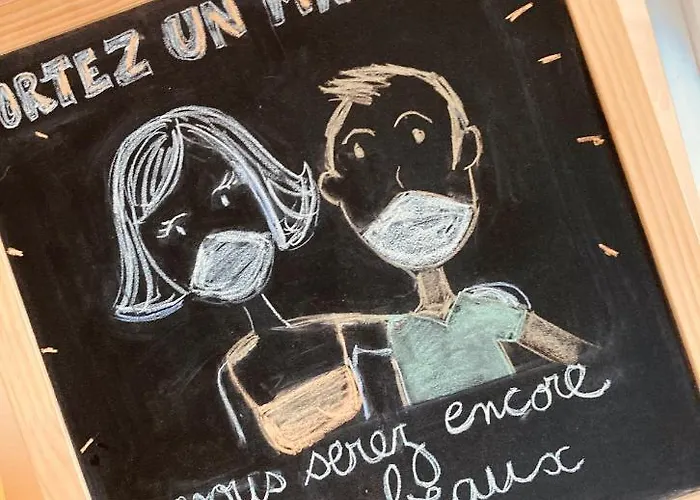 ORTEZ UN MA
vous serez encore
beaux